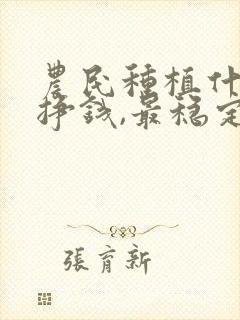 農民種植什
掙錢,最穩定
張育新